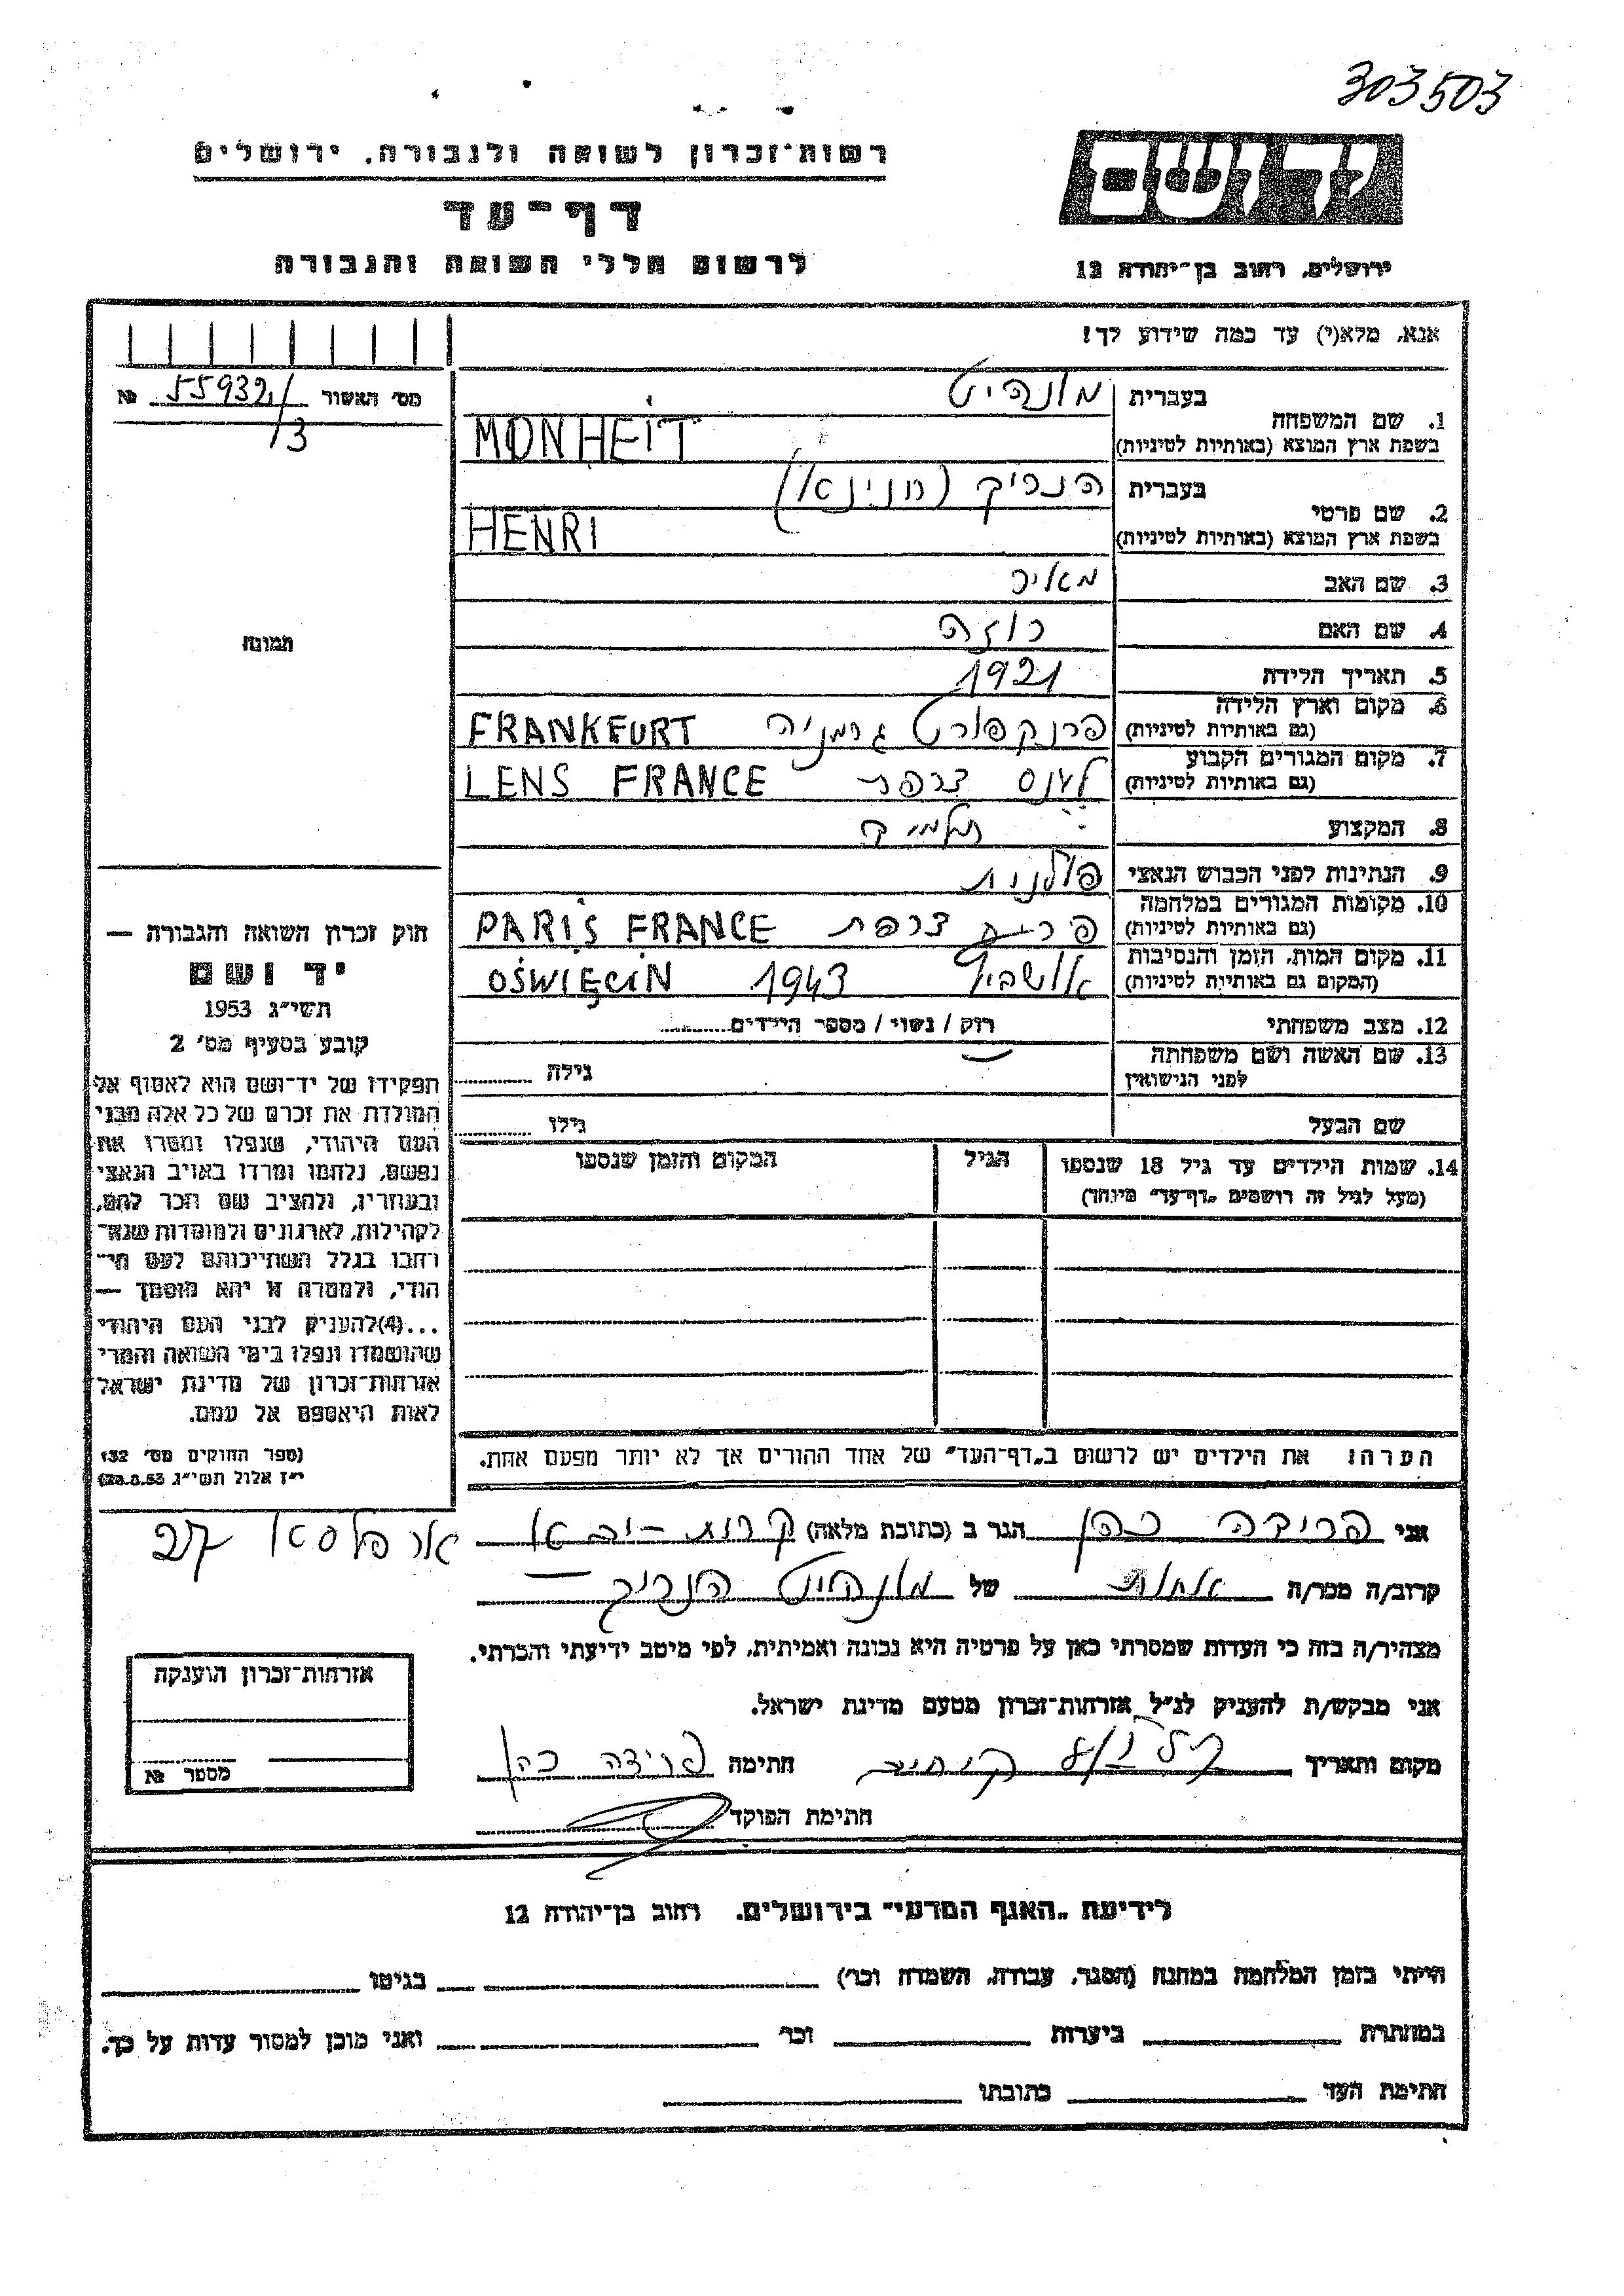 303503
יד ושם
רשות־זכרון לשואה ולגבורה, ירושלים
דף־עד
לרשום חללי השואה והגבורה
ירושלים, רחוב בן־יהודה 12
אנא, מלא(י) עד כמה שידוע לך!
מס׳ האשור 55932/3 №
1. שם המשפחה
בעברית מונהיט
בשפת ארץ המוצא (באותיות לטיניות) MONHEIT
2. שם פרטי
בעברית הנריק (חנינא)
בשפת ארץ המוצא (באותיות לטיניות) HENRI
3. שם האב מאיר
4. שם האם רוזה
5. תאריך הלידה 1921
6. מקום וארץ הלידה
(גם באותיות לטיניות) פרנקפורט גרמניה FRANKFURT
7. מקום המגורים הקבוע
(גם באותיות לטיניות) לענס צרפת LENS FRANCE
8. המקצוע תלמיד
9. הנתינות לפני הכבוש הנאצי פולנית
10. מקומות המגורים במלחמה
(גם באותיות לטיניות) פריס צרפת PARIS FRANCE
11. מקום המות, הזמן והנסיבות
(המקום גם באותיות לטיניות) אושביץ 1943 OŚWIĘCIN
12. מצב משפחתי רוק / נשוי / מספר הילדים
13. שם האשה ושם משפחתה
לפני הנישואין גילה
שם הבעל גילו
14. שמות הילדים עד גיל 18 שנספו
(מעל לגיל זה רושמים „דף־עד" מיוחד)
הגיל
המקום והזמן שנספו
הערה: את הילדים יש לרשום ב„דף־העד" של אחד ההורים אך לא יותר מפעם אחת.
תמונה
חוק זכרון השואה והגבורה —
יד ושם
תשי״ג 1953
קובע בסעיף מס׳ 2
תפקידו של יד־ושם הוא לאסוף אל
המולדת את זכרם של כל אלה מבני
העם היהודי, שנפלו ומסרו את
נפשם, נלחמו ומרדו באויב הנאצי
ובעוזריו, ולהציב שם וזכר להם,
לקהילות, לארגונים ולמוסדות שנח־
רחבו בגלל השתייכותם לעם הי־
הודי, ולמטרה זו יהא מוסמך —
...(4)להעניק לבני העם היהודי
שהושמדו ונפלו בימי השואה והמרי
אזרחות־זכרון של מדינת ישראל
לאות היאספם אל עמם.
(ספר החוקים מס׳ 132
י״ז אלול תשי״ג 28.8.53)
אני פרידה כהן הגר ב (כתובת מלאה) קרית־ים
27
קרוב/ה מכר/ה אחות של מונהיט הנריק —
מצהיר/ה בזה כי העדות שמסרתי כאן על פרטיה היא נכונה ואמיתית, לפי מיטב ידיעתי והכרתי.
אני מבקש/ת להעניק לנ״ל אזרחות־זכרון מטעם מדינת ישראל.
מקום ותאריך
חתימה פרידה כהן
חתימת הפוקד
אזרחות־זכרון הוענקה
מספר №
לידיעת „האגף המדעי" בירושלים, רחוב בן־יהודה 12
הייתי בזמן המלחמה במחנה (הסגר, עבודה, השמדה וכו׳) בגיטו
במחתרת ביערות וכו׳ ואני מוכן למסור עדות על כך.
חתימת העד כתובתו